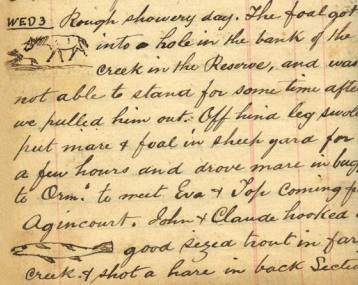 WED 3 Rough showery day. The foal got
into a hole in the bank of the
creek in the Reserve, and was
not able to stand for some time after
we pulled him out. Off hind leg
put mare & foal in sheep yard for
a few hours and drove mare in
to Orm.d to meet Eva & Top coming
Agincourt. John & Claude hooked
good sized trout in far
creek & shot a hare in back